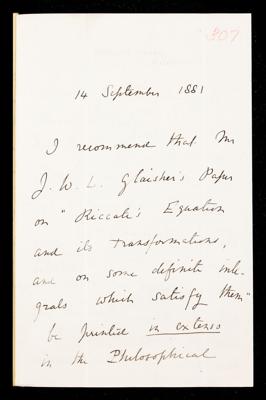 307
14 September 1881
I recommend that Mr
J. W. L. Glaisher's Paper
on "Riccati's Equation
and its transformations,
and on some definite inte-
grals which satisfy them"
be printed in extenso
in the Philosophical